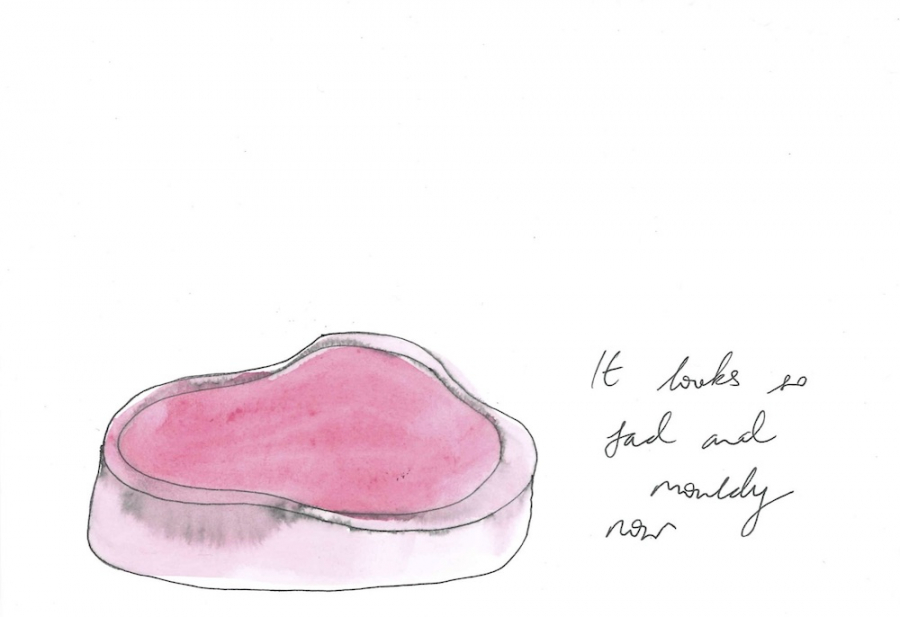 It looks so
sad and
mouldy
now